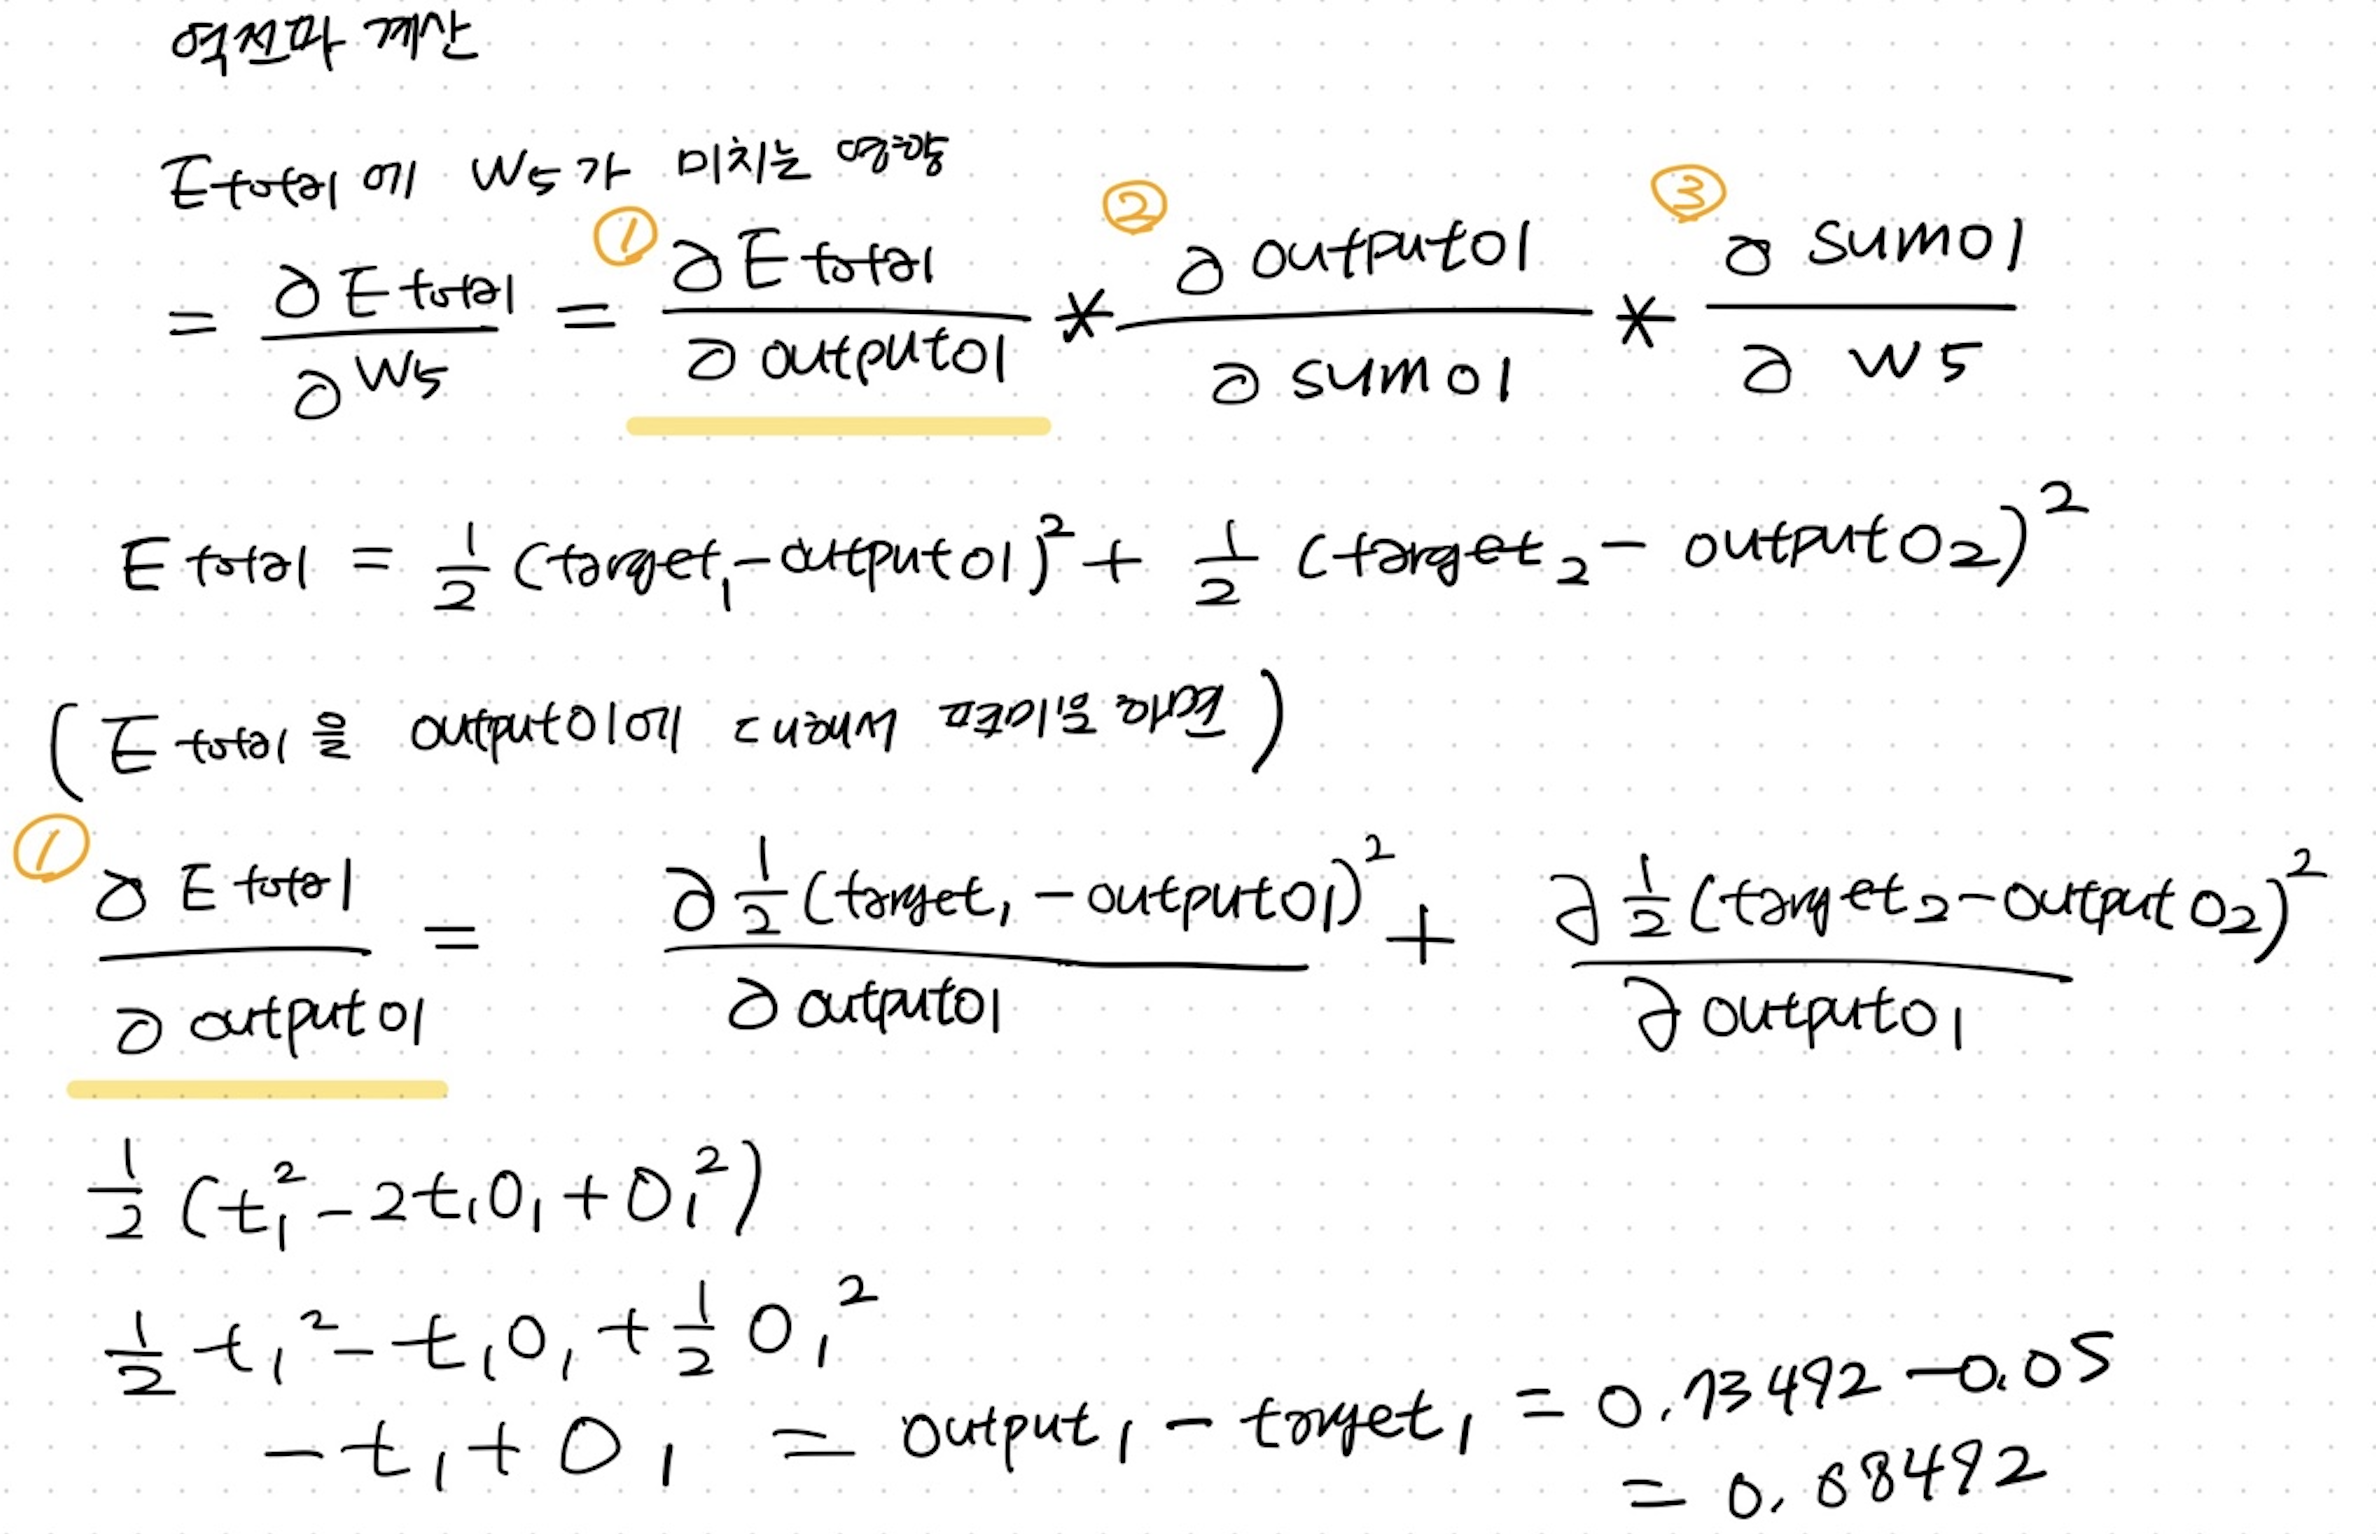 역전파 계산
Etotal에 W5가 미치는 영향
= ∂Etotal/∂W5 = ① ∂Etotal/∂outputo1 * ② ∂outputo1/∂sumo1 * ③ ∂sumo1/∂w5
Etotal = 1/2 (target₁-outputo1)² + 1/2 (target₂-outputo₂)²
(Etotal을 outputo1에 대해서 편미분 하면)
① ∂Etotal/∂outputo1 = ∂1/2(target₁-outputo1)²/∂outputo1 + ∂1/2(target₂-outputo₂)²/∂outputo₁
1/2 (t₁²-2t₁o₁+o₁²)
1/2 t₁²-t₁o₁+1/2 o₁²
-t₁+o₁ = output₁-target₁ = 0.73492-0.05
= 0.68492